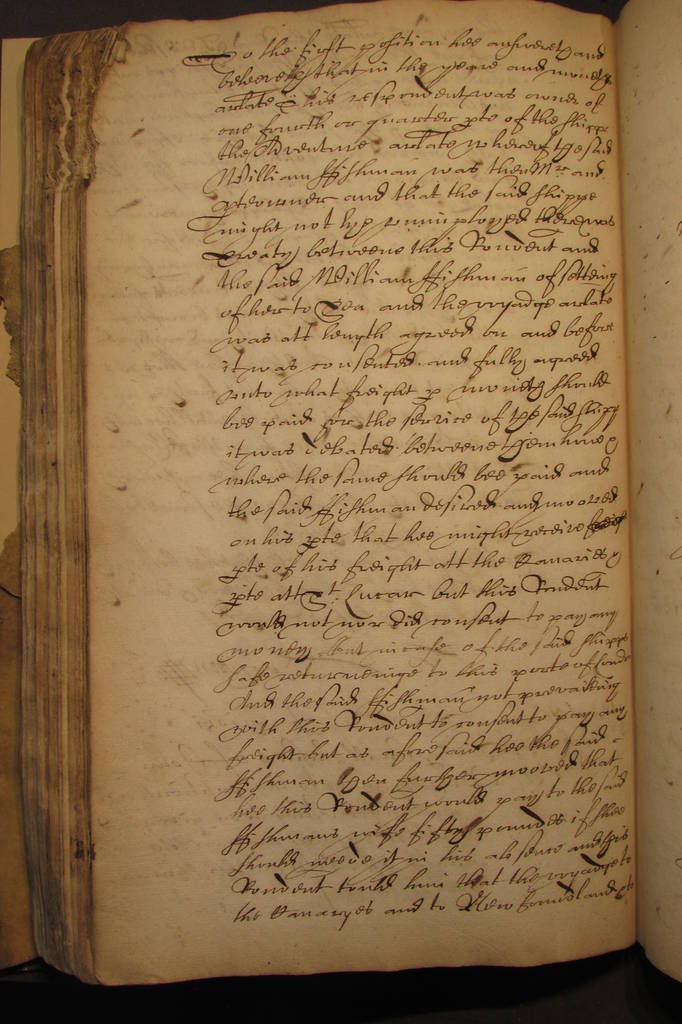 To the first position hee answereth and
beleeveth that in the yeare and moneth
arlate this respondent was owner of
one fourth or quarter pte of the shipp
the Adventure arlate whereof the said
William ffishman was then Mr and
pte owner and that the said shippe
might not lye unimployed there was
treaty betweene this Rondent and
the said William ffishman of setting
of her to Sea and the voyadge arlate
was att length agreed on and before
it was consented and fully agreed
unto what freight p moneth should
bee paid for the service of the said shipp
it was debated betweene them
where the same should bee paid and
the said ffishman desired and mooved
on his pte that hee might receive
pte of his freight att the Canaries
pte att St. Lucar but this Rondent
would not nor did consent to pay any
money but in case of the said shipps
safe returneinge to this porte of London
And the said ffishman not prevailing
with this Rondent to consent to pay any
freight but as aforesaid hee the said
ffishman then further mooved that
hee this Rondent would pay to the said
ffishmans wife fifty pounds if shee
should neede it in his absence and this
Rondent tould him that the voyadge to
the Canaryes and to New foundland